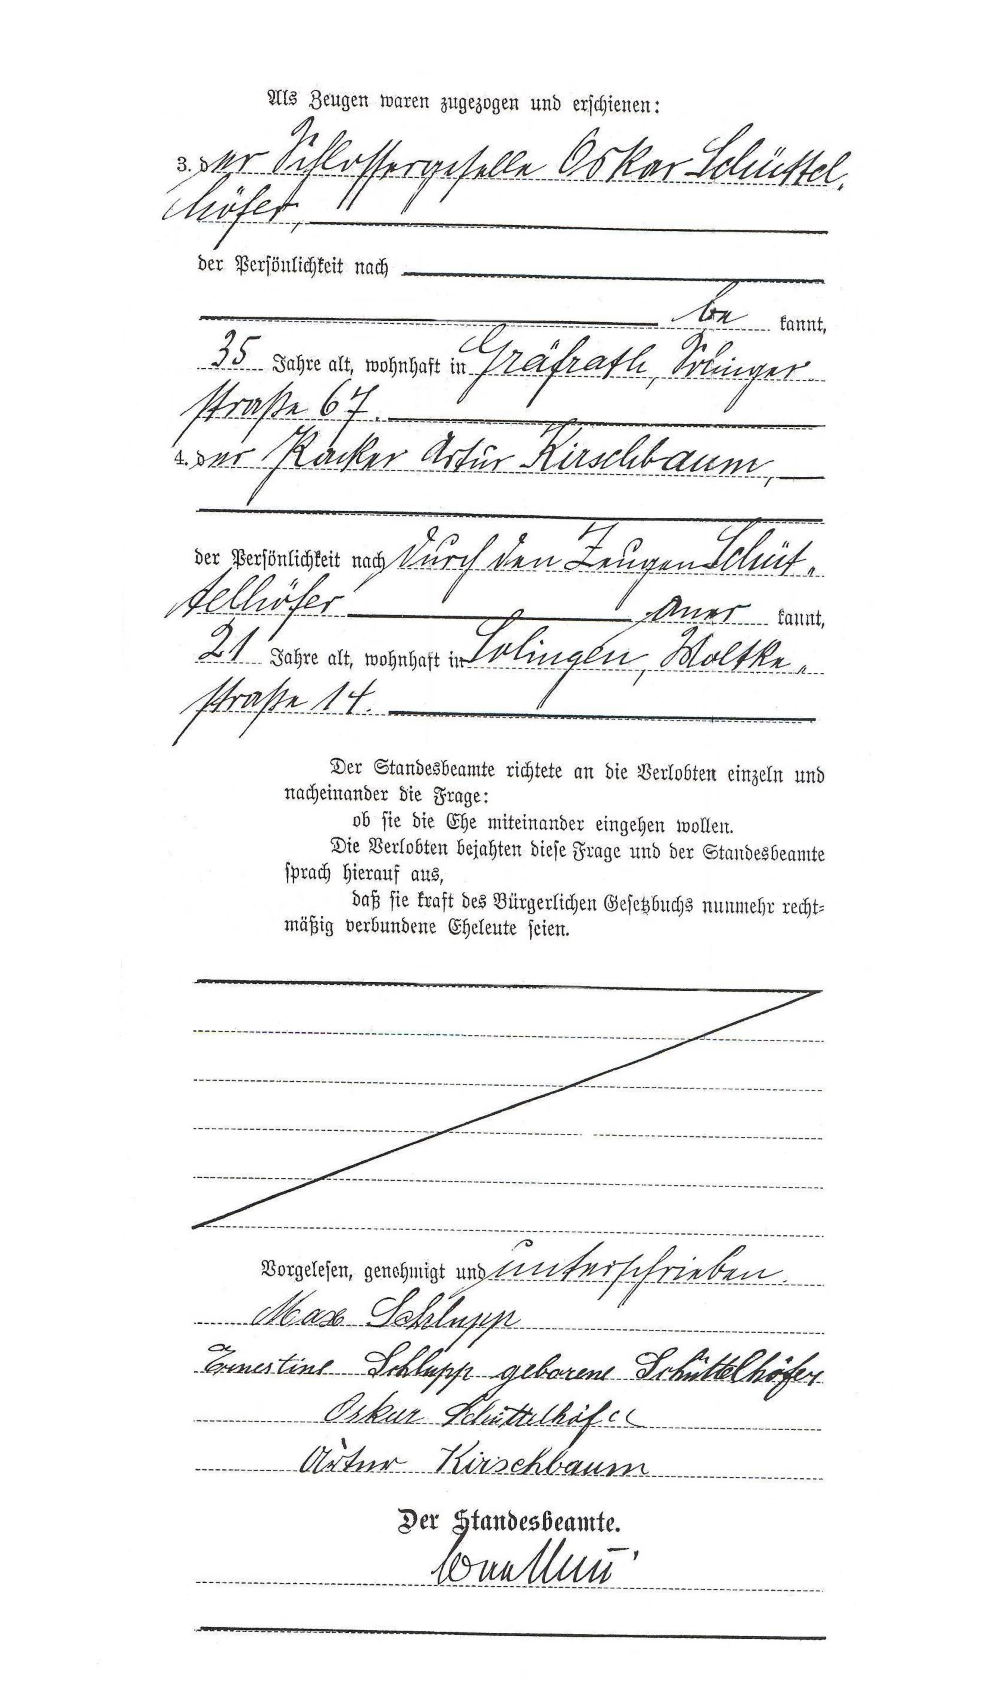 Als Zeugen waren zugezogen und erschienen:
3. der Schlossergeselle Oskar Schüttel-
höfer,
der Persönlichkeit nach
be kannt,
35 Jahre alt, wohnhaft in Gräfrath, Sölinger
straße 67.
4. der Packer Artur Kirschbaum,
der Persönlichkeit nach durch den Zeugen Schüt-
telhöfer aner kannt,
21 Jahre alt, wohnhaft in Solingen, Moltke-
straße 14.
Der Standesbeamte richtete an die Verlobten einzeln und
nacheinander die Frage:
ob sie die Ehe miteinander eingehen wollen.
Die Verlobten bejahten diese Frage und der Standesbeamte
sprach hierauf aus,
daß sie kraft des Bürgerlichen Gesetzbuchs nunmehr recht-
mäßig verbundene Eheleute seien.
Vorgelesen, genehmigt und unterschrieben.
Max Schlupp
Ernestine Schlupp geborene Schüttelhöfer
Oskar Schüttelhöfer
Artur Kirschbaum
Der Standesbeamte.